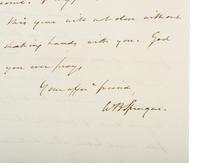 this year will not close without
shaking hands with you. God
you ever pray,
Your affec. friend,
W B Sprague.